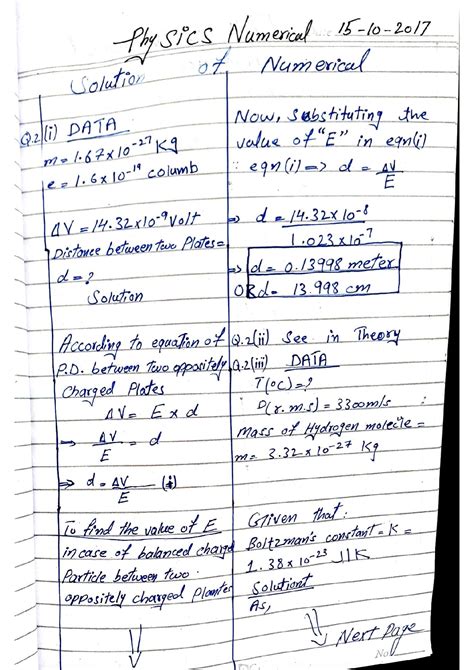 Physics Numerical 15-10-2017
Solution of Numerical
Q.2(i) DATA
m = 1.67x10-27 Kg
e = 1.6x10-19 columb
ΔV = 14.32x10-9 Volt
Distance between two Plates =
d = ?
Solution
According to equation of
P.D. between two oppositely
Charged Plates
ΔV = E x d
⇒ ΔV/E = d
⇒ d = ΔV/E (i)
To find the value of E
in case of balanced charged
Particle between two
oppositely charged
Now, Substituting the
value of "E" in eqn(i)
∵ eqn(i) ⇒ d = ΔV/E
⇒ d = 14.32x10-8
1.023x10-7
⇒ d = 0.13998 meter
OR d = 13.998 cm
Q.2(ii) See in Theory
Q.2(iii) DATA
T(oc) = ?
(r.m.s) = 3300m/s
Mass of Hydrogen molecule =
m = 3.32x10-27 Kg
Given that:
Boltzman's constant = K =
1.38x10-23 J/K
Solution:
As,
⇒ Next Page
No